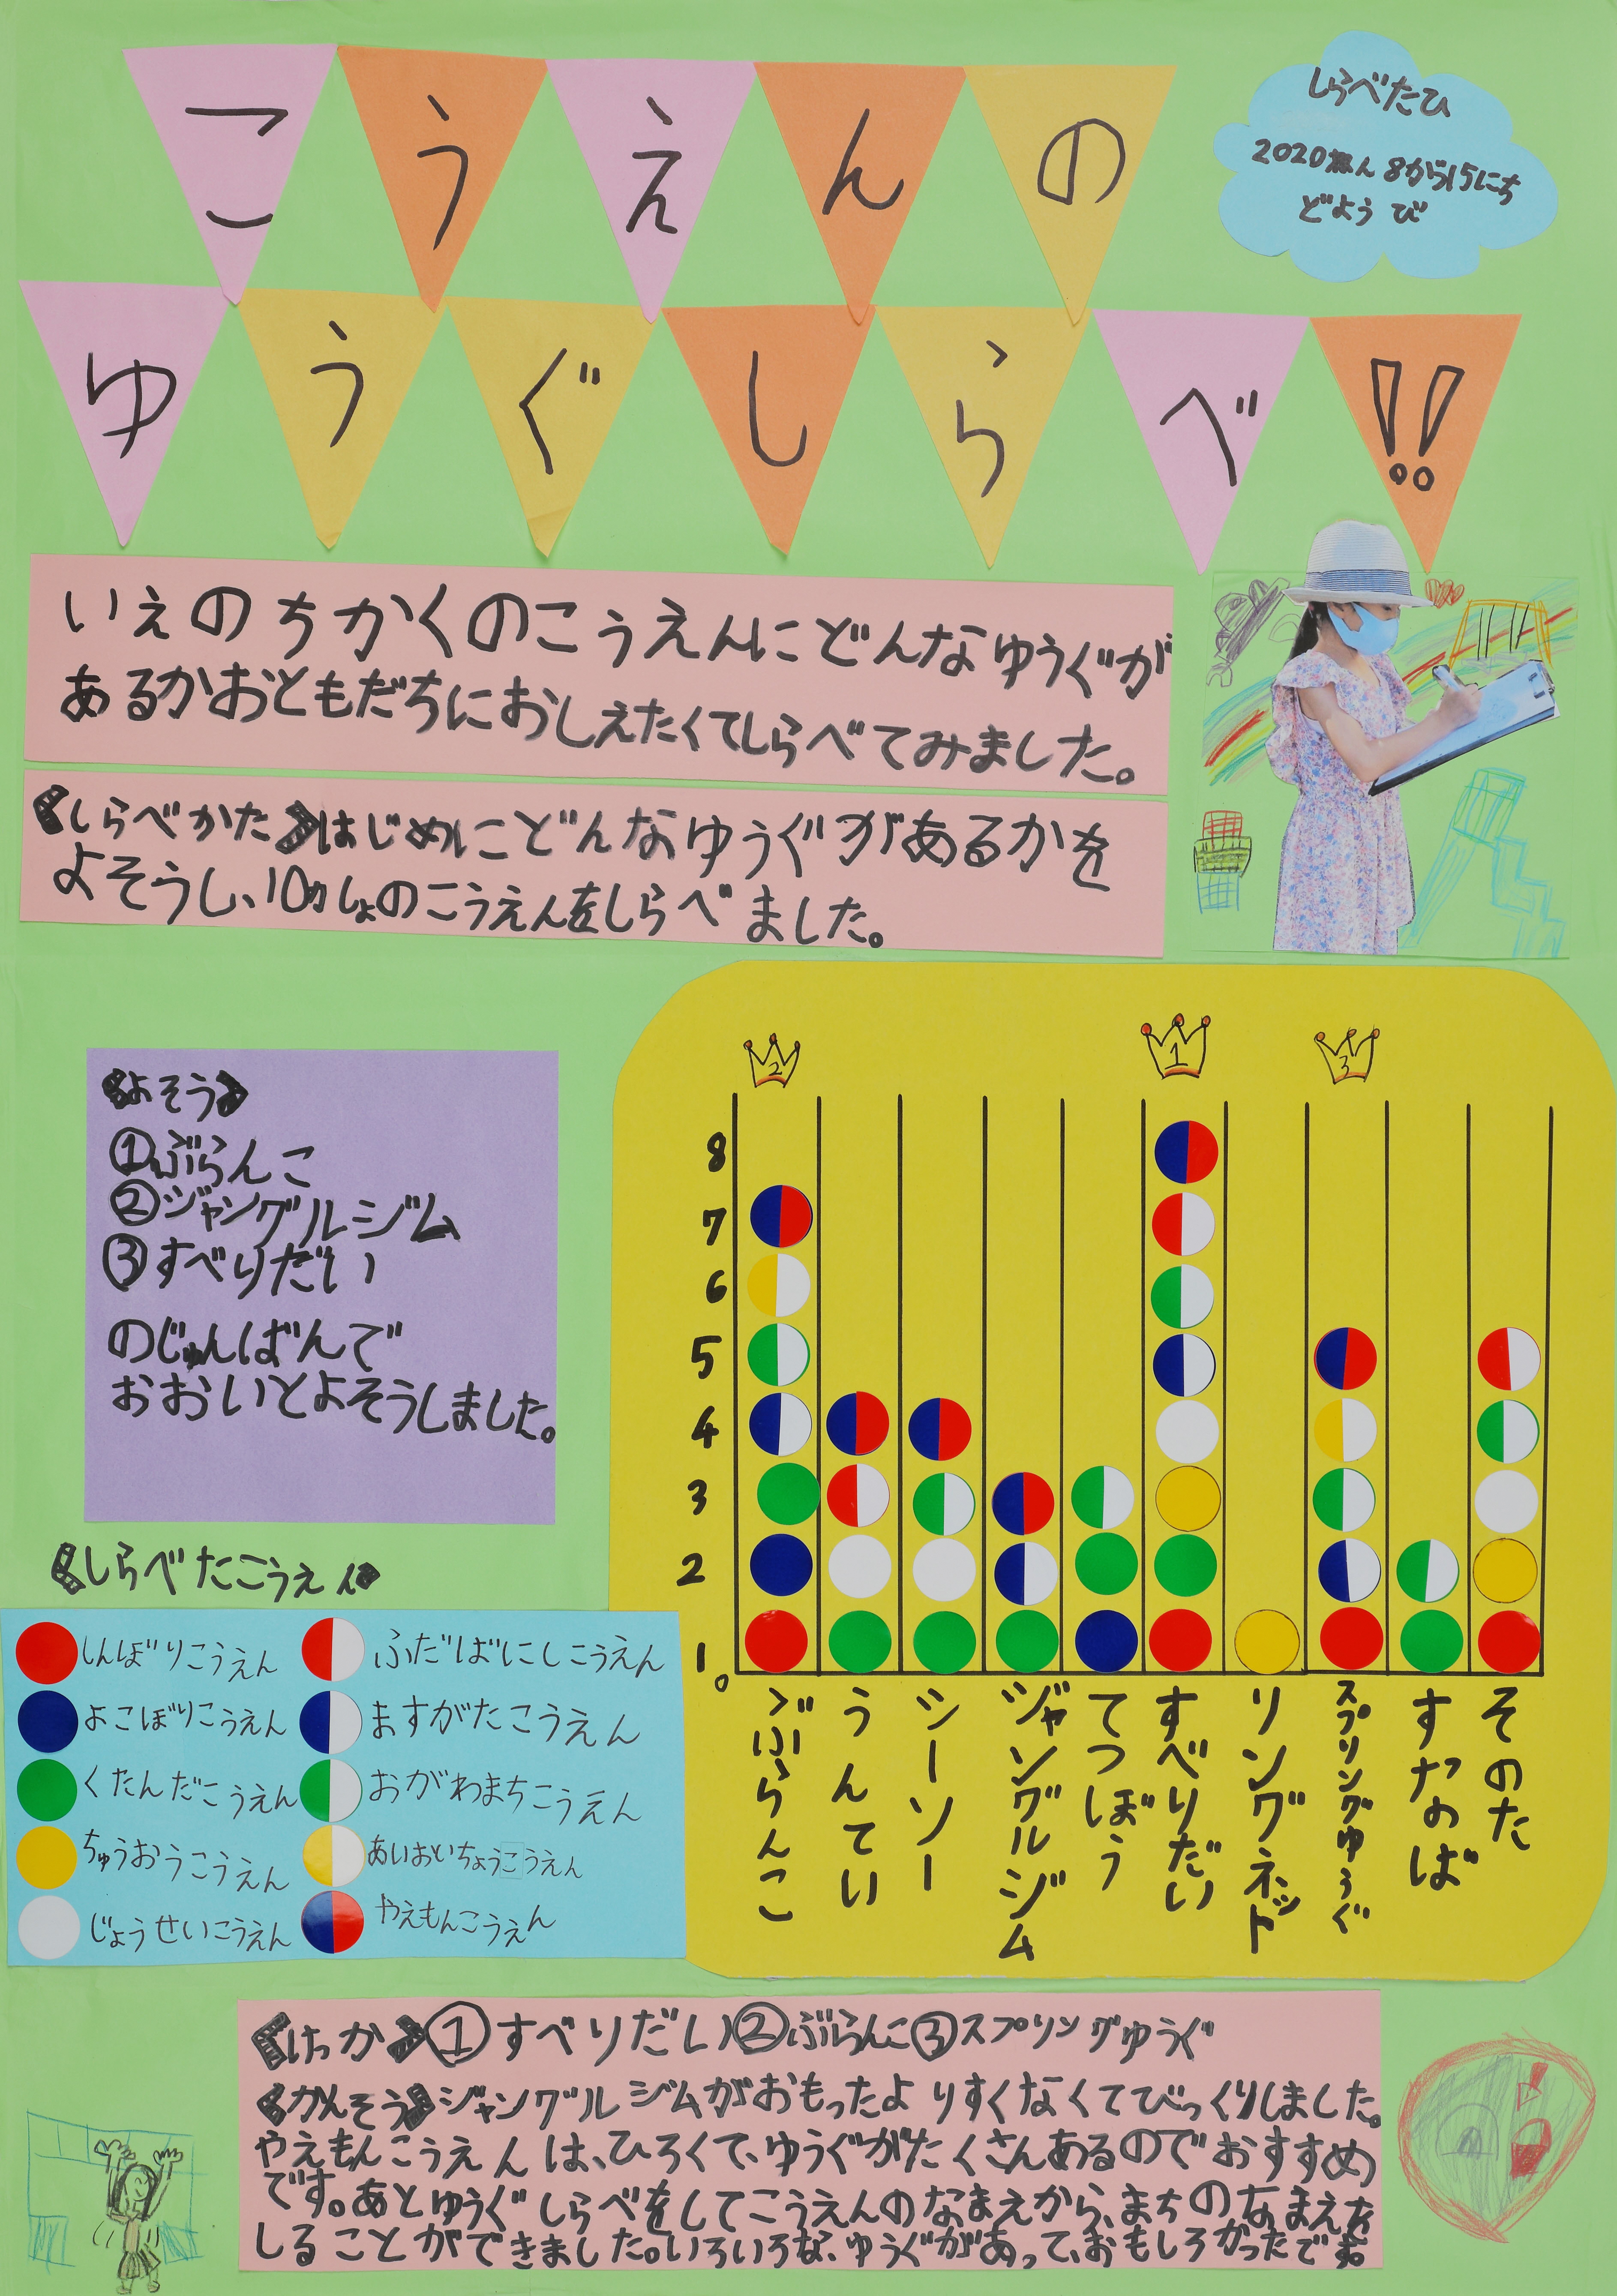 こうえんの
ゆうぐしらべ!!
しらべたひ
2020ねん8がつ15にち
どようび
いえのちかくのこうえんにどんなゆうぐが
あるかおともだちにおしえたくてしらべてみました。
《しらべかた》はじめにどんなゆうぐがあるかを
よそうし、10かしょのこうえんをしらべました。
《よそう》
①ぶらんこ
②ジャングルジム
③すべりだい
のじゅんばんで
おおいとよそうしました。
2
1
3
8
7
6
5
4
3
2
1
0
ぶらんこ
うんてい
シーソー
ジャングルジム
てつぼう
すべりだい
リングネット
スプリングゆうぐ
すなば
そのた
《しらべたこうえん》
しんぼりこうえん
よこぼりこうえん
くたんだこうえん
ちゅうおうこうえん
じょうせいこうえん
ふだばにしこうえん
ますがたこうえん
おがわまちこうえん
あいおいちょうこうえん
やえもんこうえん
《けっか》①すべりだい②ぶらんこ③スプリングゆうぐ
《かんそう》ジャングルジムがおもったよりすくなくてびっくりしました。
やえもんこうえんは、ひろくて、ゆうぐがたくさんあるのでおすすめ
です。あとゆうぐしらべをしてこうえんのなまえから、まちのなまえを
しることができました。いろいろな、ゆうぐがあって、おもしろかったです。